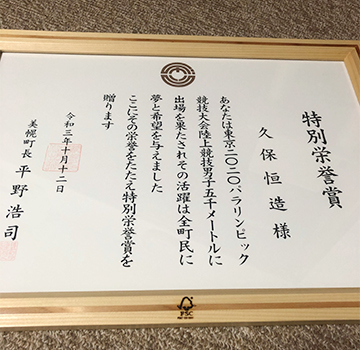 特別栄誉賞
久保恒造様
あなたは東京二〇二〇パラリンピック
競技大会陸上競技男子五千メートルに
出場を果たされその活躍は全町民に
夢と希望を与えました
ここにその栄誉をたたえ特別栄誉賞を
贈ります
令和三年十月十二日
美幌町長 平野浩司
FSC